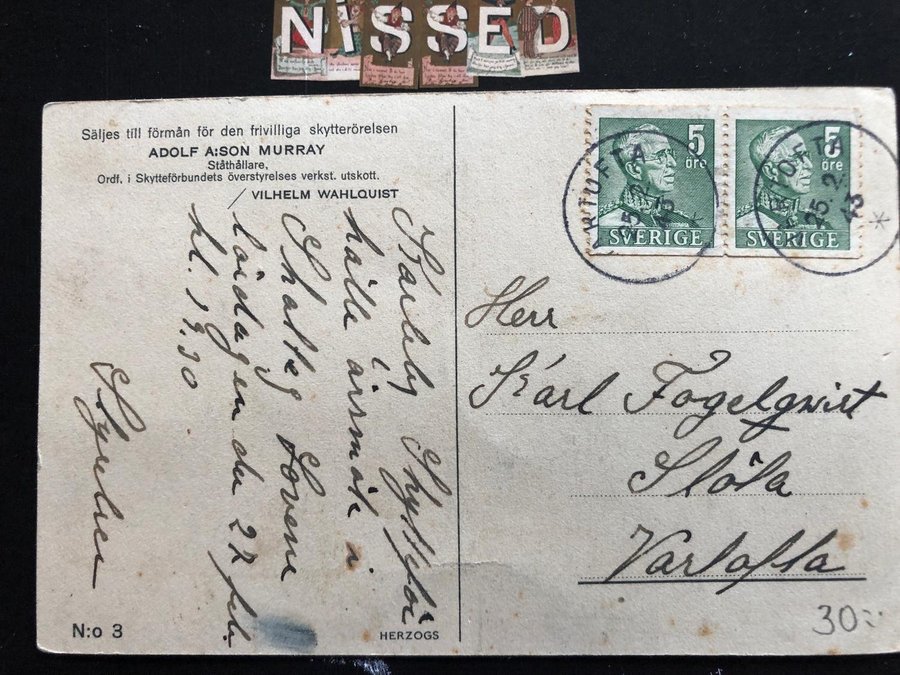 NiSSED
Säljes till förmån för den frivilliga skytterörelsen
ADOLF A:SON MURRAY
Ståthållare,
Ordf. i Skytteförbundets överstyrelses verkst. utskott.
VILHELM WAHLQUIST
Karleby Skytteför
håller årsmöte i
Skatteg Lovene
lördagen den 27 feb.
kl. 19,30
Styrelsen
N:o 3
HERZOGS
5
öre
SVERIGE
5
öre
SVERIGE
VARTOFTA
25.2.
43
VARTOFTA
25.2.
43
Herr
Karl Fogelqvist
Slöta
Vartofta
30:-